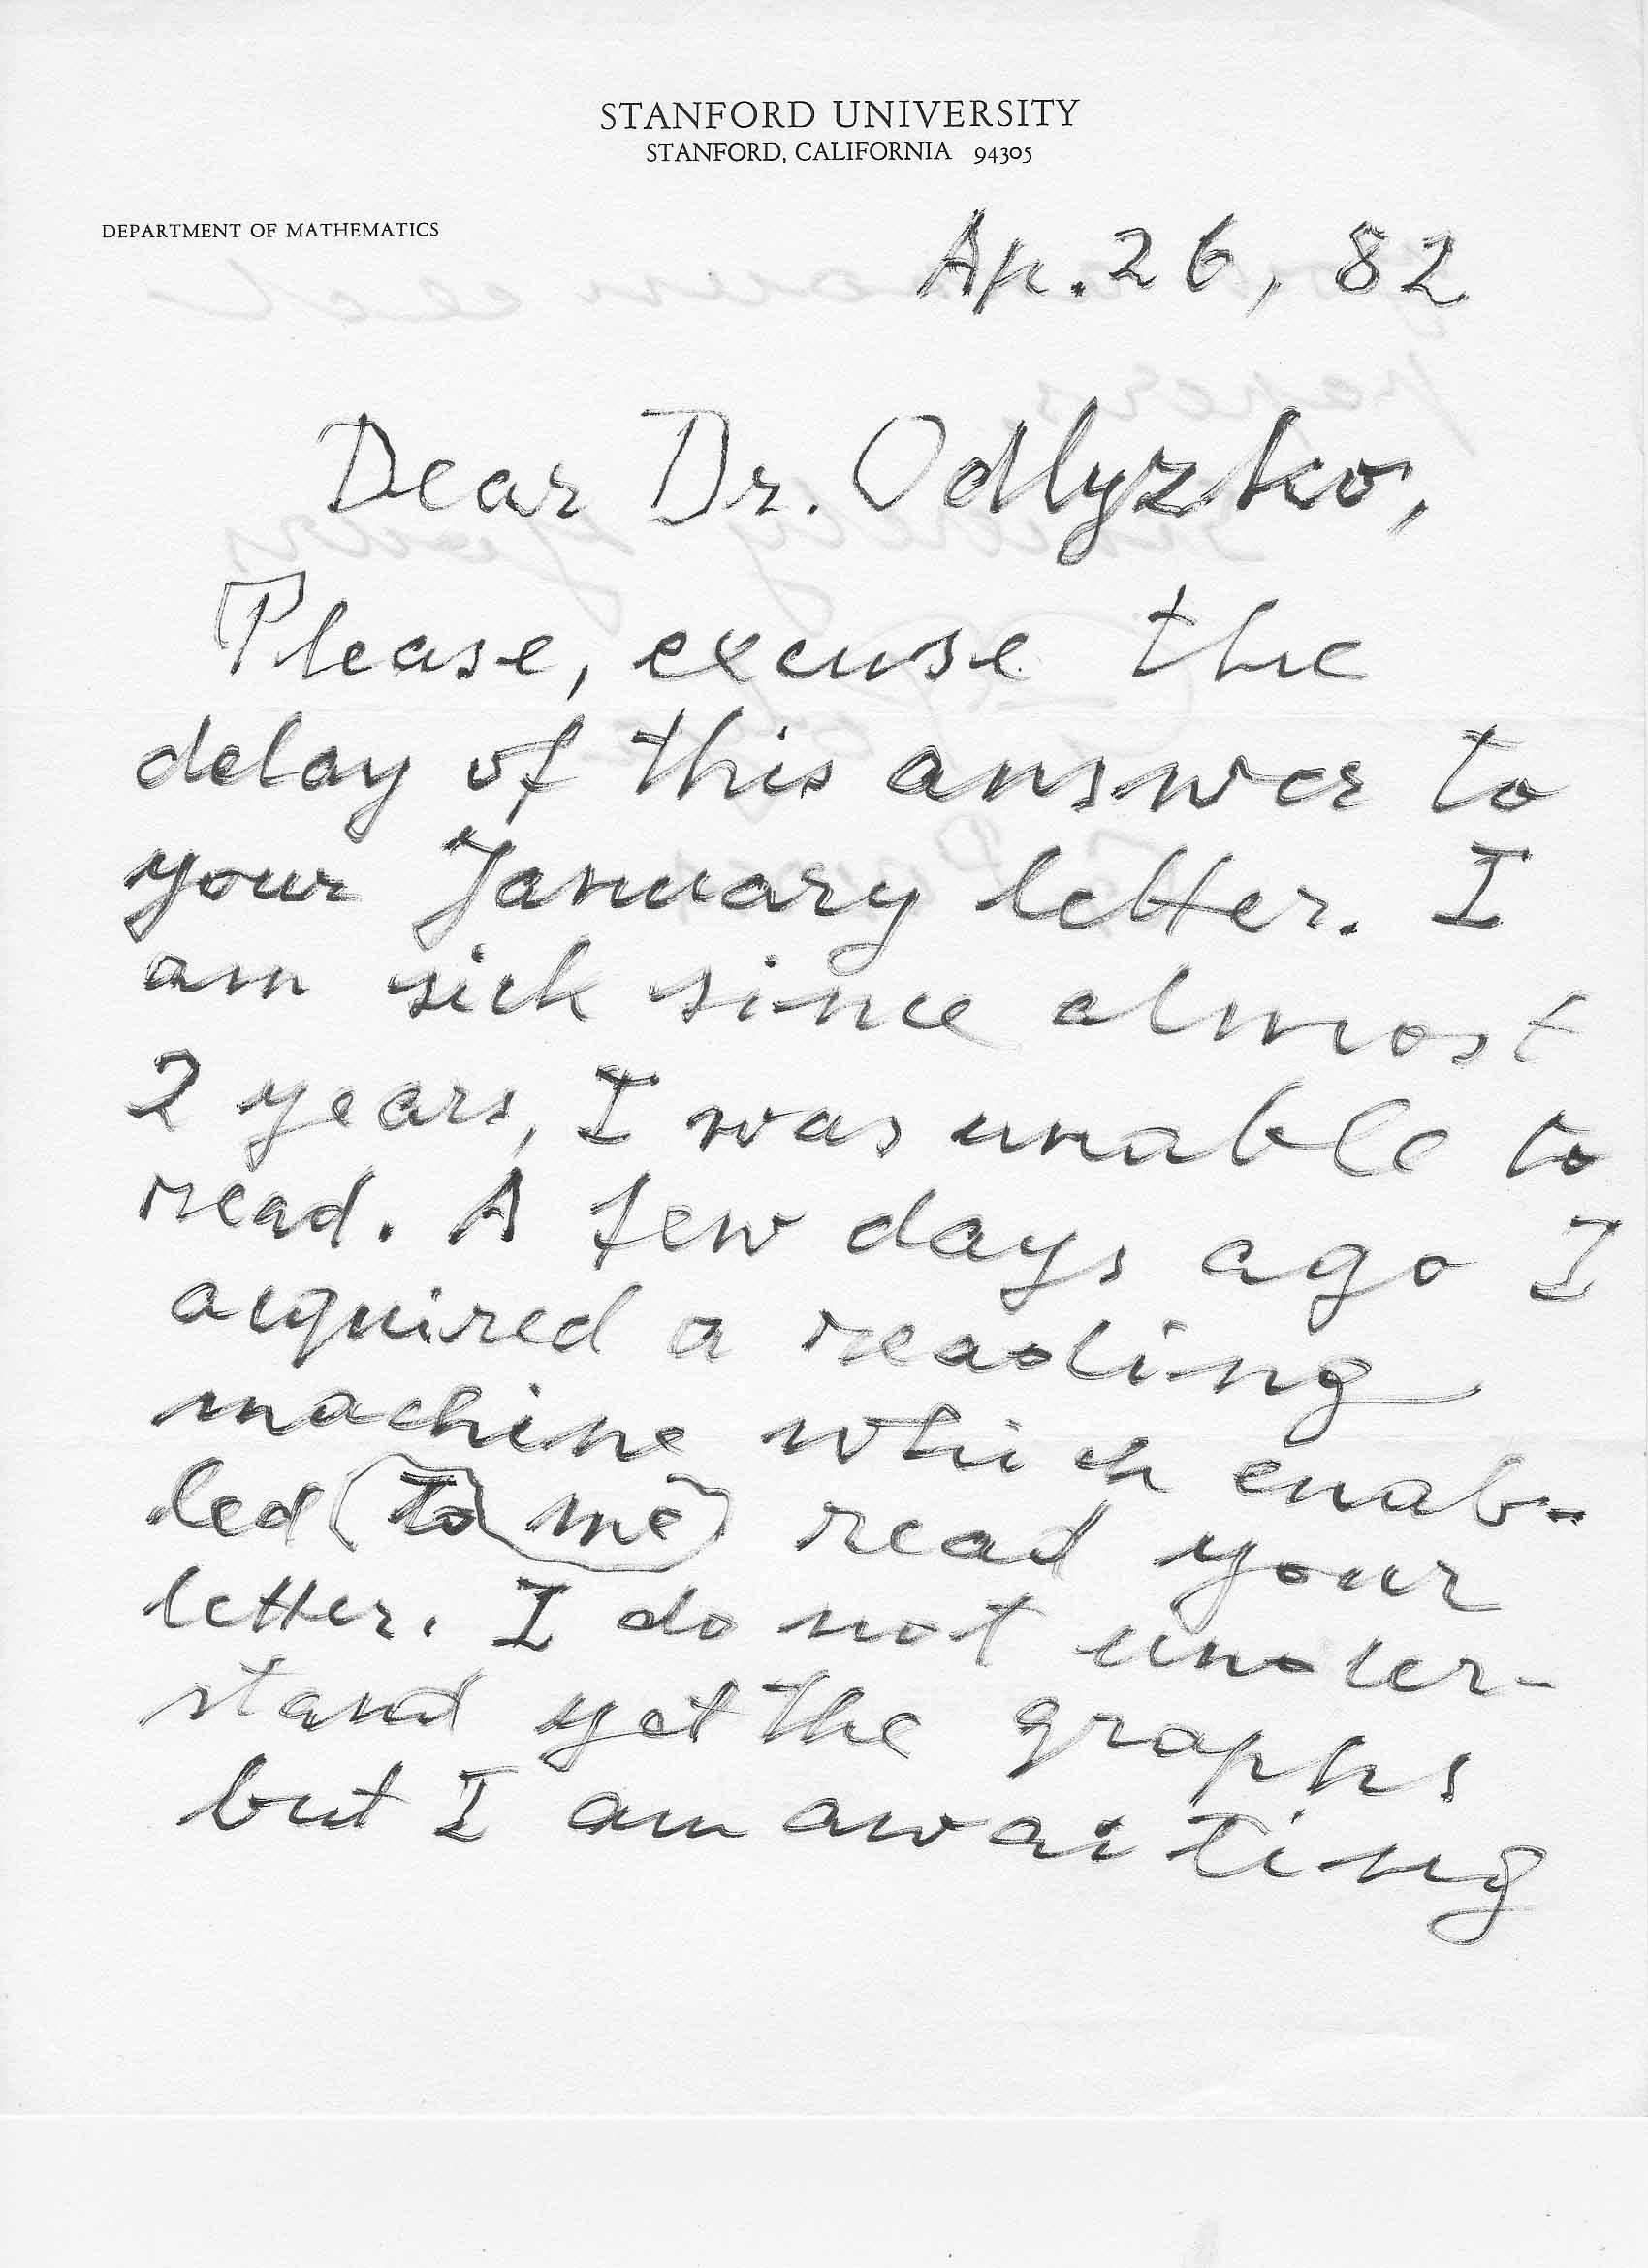 STANFORD UNIVERSITY
STANFORD, CALIFORNIA 94305
DEPARTMENT OF MATHEMATICS
Ap. 26, 82
Dear Dr. Odlyzko,
Please, excuse the
delay of this answer to
your January letter. I
am sick since almost
2 years, I was unable to
read. A few days ago I
acquired a reading
machine which enab-
led (to me) read your
letter. I do not under-
stand yet the graphs
but I am awaiting